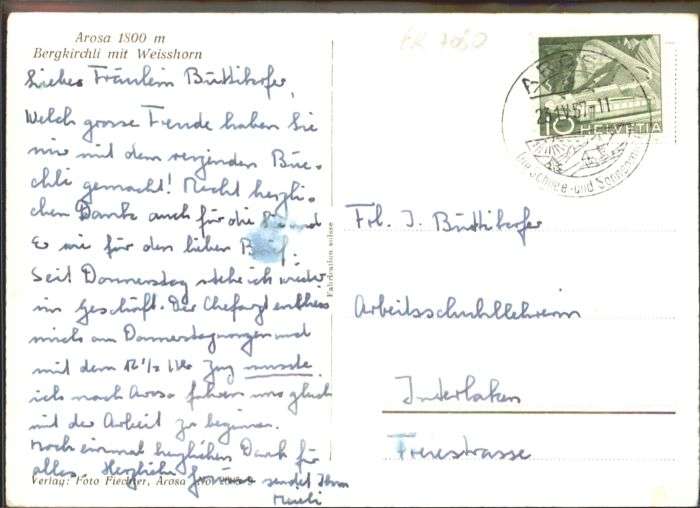 Arosa 1800 m
Bergkirchli mit Weisshorn
Liebes Fräulein Büttikofer,
Welch grosse Freude haben Sie
mir mit dem reizenden Büe-
chli gemacht! Recht herzli-
chen Dank auch für die
wie für den lieben Brief.
Seit Donnerstag stehe ich wieder
im Geschäft. Der Chefarzt entliess
mich am Donnerstagmorgen und
mit dem 12 1/2 Uhr Zug musste
ich nach Arosa fahren um gleich
mit der Arbeit zu beginnen.
Noch einmal herzlichen Dank für
alles. Herzliche Grüsse sendet Ihnen
Verlag: Foto Fiechter, Arosa No.
Fabrication suisse
HELVETIA
10
AROSA
23.IV.52-11
für Schnee- und
Frl. I. Büttikofer
Arbeitsschullehrerin
Interlaken
Freiestrasse